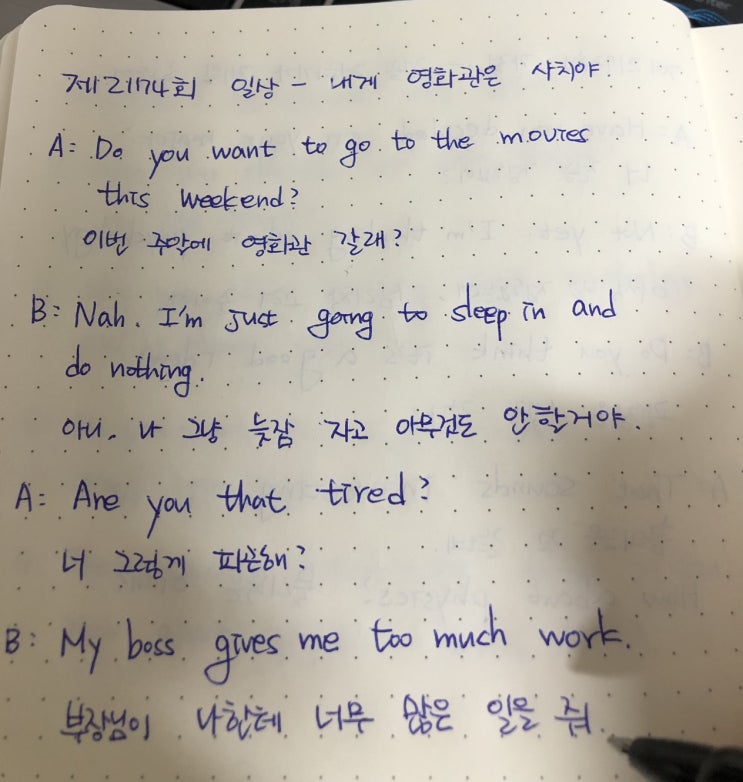 제2174회 일상 - 내게 영화관은 사치야.
A: Do you want to go to the movies
this weekend?
이번 주말에 영화관 갈래?
B: Nah. I'm just going to sleep in and
do nothing.
아니. 나 그냥 늦잠 자고 아무것도 안할거야.
A: Are you that tired?
너 그렇게 피곤해?
B: My boss gives me too much work.
부장님이 나한테 너무 많은 일을 줘.